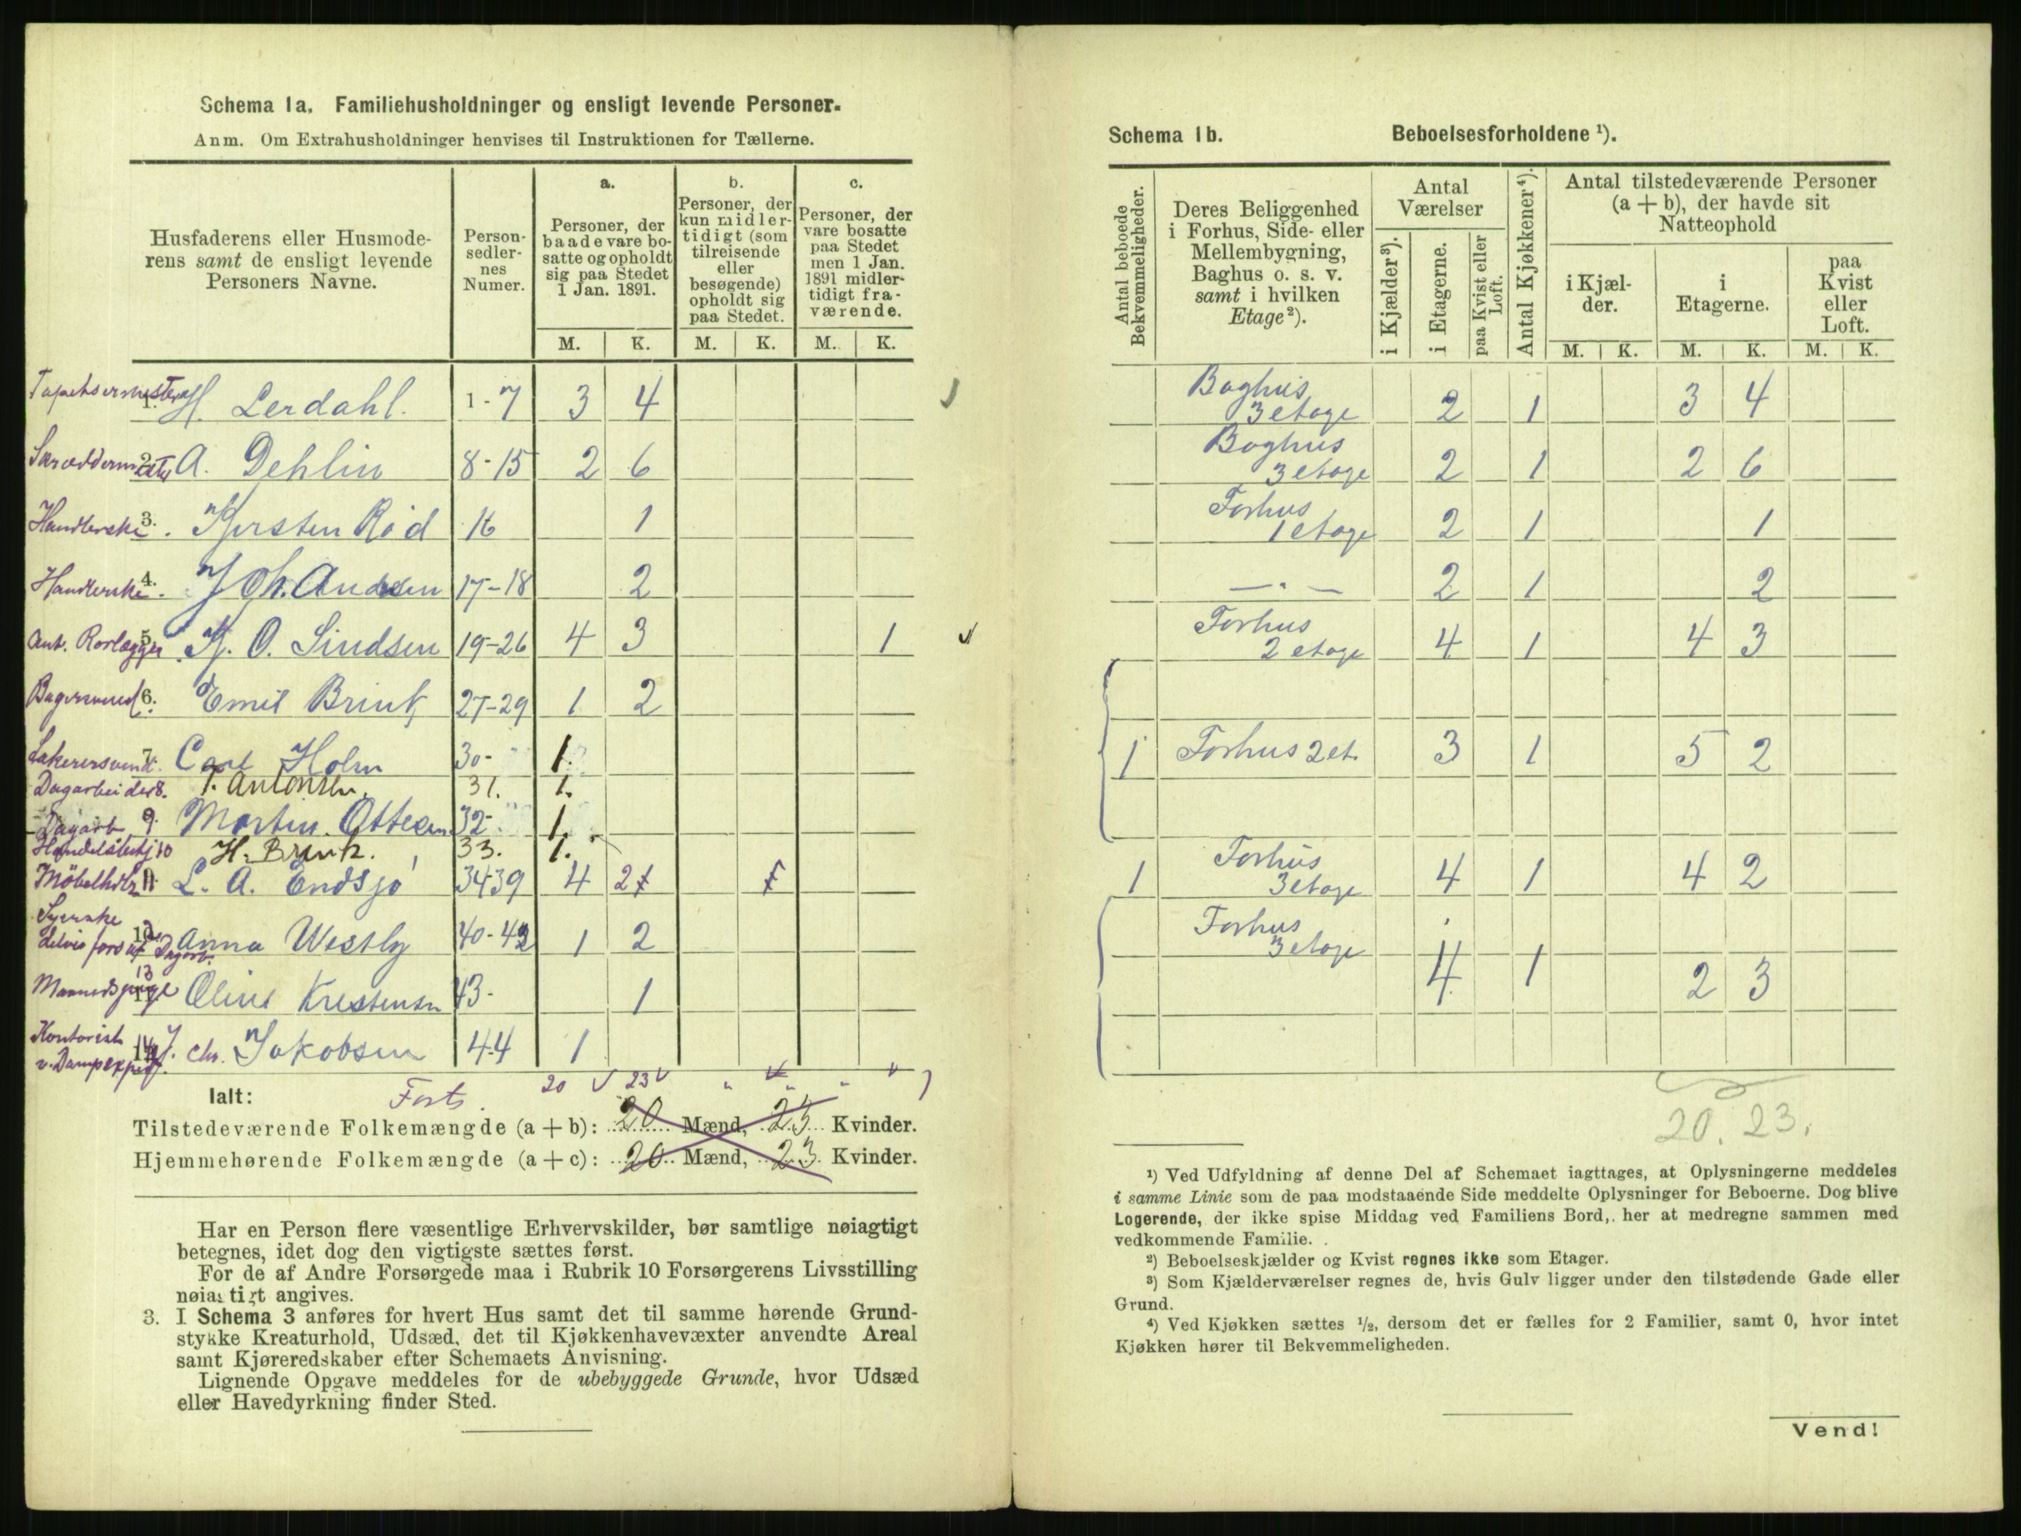 Schema 1a. Familiehusholdninger og ensligt levende Personer.
Anm. Om Extrahusholdninger henvises til Instruktionen for Tællerne.
Husfaderens eller Husmoderens samt de ensligt levende Personers Navne.
Personsedlernes Numer.
a. Personer, der baade vare bosatte og opholdt sig paa Stedet 1 Jan. 1891.
b. Personer, der kun midlertidigt (som tilreisende eller besøgende) opholdt sig paa Stedet.
c. Personer, der vare bosatte paa Stedet men 1 Jan. 1891 midlertidigt fraværende.
M. K. M. K. M. K.
Tapetsermester 1. H. Lerdahl. 1-7 3 4
Skræddermester 2. A. Dehlin 8-15 2 6
Handlerske 3. Kjersten Rød 16 1
Handlerske 4. Joh. Andersen 17-18 2
Ant. Rorlægger 5. Kj. O. Lindsen 19-26 4 3 1
Bagersvend 6. Emil Brink 27-29 1 2
Lakerersvend 7. Carl Holm 30- 1.
Dagarbeider 8. T. Antonsen. 31. 1.
Dagarb 9. Martin Ottesen 32- 1.
10 H. Brink. 33. 1.
Møbelhdlr 11. L. A. Endsjø 34-39 4 2
Syerske
12 Anna Westby 40-42 1 2
13 Oline Krestensen 43- 1
Kontorist
v. Dampexped. 14 J. Chr. Jakobsen 44 1
Ialt: Forts. 20 23
Tilstedeværende Folkemængde (a + b): 20 Mænd, 25 Kvinder.
Hjemmehørende Folkemængde (a + c): 20 Mænd, 23 Kvinder.
Har en Person flere væsentlige Erhvervskilder, bør samtlige nøiagtigt
betegnes, idet dog den vigtigste sættes først.
For de af Andre Forsørgede maa i Rubrik 10 Forsørgerens Livsstilling
nøiagtigt angives.
3. I Schema 3 anføres for hvert Hus samt det til samme hørende Grund-
stykke Kreaturhold, Udsæd, det til Kjøkkenhavevæxter anvendte Areal
samt Kjøreredskaber efter Schemaets Anvisning.
Lignende Opgave meddeles for de ubebyggede Grunde, hvor Udsæd
eller Havedyrkning finder Sted.
Schema 1b. Beboelsesforholdene ¹).
Antal beboede Bekvemmeligheder.
Deres Beliggenhed i Forhus, Side- eller Mellembygning, Baghus o. s. v. samt i hvilken Etage ²).
Antal Værelser
i Kjælder ³).
i Etagerne.
paa Kvist eller Loft.
Antal Kjøkkener ⁴).
Antal tilstedeværende Personer (a + b), der havde sit Natteophold
i Kjælder. i Etagerne. paa Kvist eller Loft.
M. K. M. K. M. K.
Baghus
3 etage 2 1 3 4
Baghus
3 etage 2 1 2 6
Forhus
1 etage 2 1 1
— " — 2 1 2
Forhus
2 etage 4 1 4 3
1 Forhus 2 et. 3 1 5 2
Forhus
1 3 etage 4 1 4 2
Forhus
3 etage
4 1 2 3
20. 23.
¹) Ved Udfyldning af denne Del af Schemaet iagttages, at Oplysningerne meddeles
i samme Linie som de paa modstaaende Side meddelte Oplysninger for Beboerne. Dog blive
Logerende, der ikke spise Middag ved Familiens Bord, her at medregne sammen med
vedkommende Familie.
²) Beboelseskjælder og Kvist regnes ikke som Etager.
³) Som Kjælderværelser regnes de, hvis Gulv ligger under den tilstødende Gade eller
Grund.
⁴) Ved Kjøkken sættes ¹/₂, dersom det er fælles for 2 Familier, samt 0, hvor intet
Kjøkken hører til Bekvemmeligheden.
Vend!